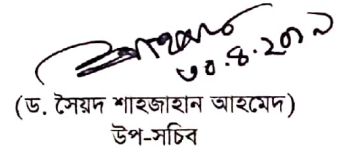 ৩০.৪.২০১৭
(ড. সৈয়দ শাহজাহান আহমেদ)
উপ-সচিব